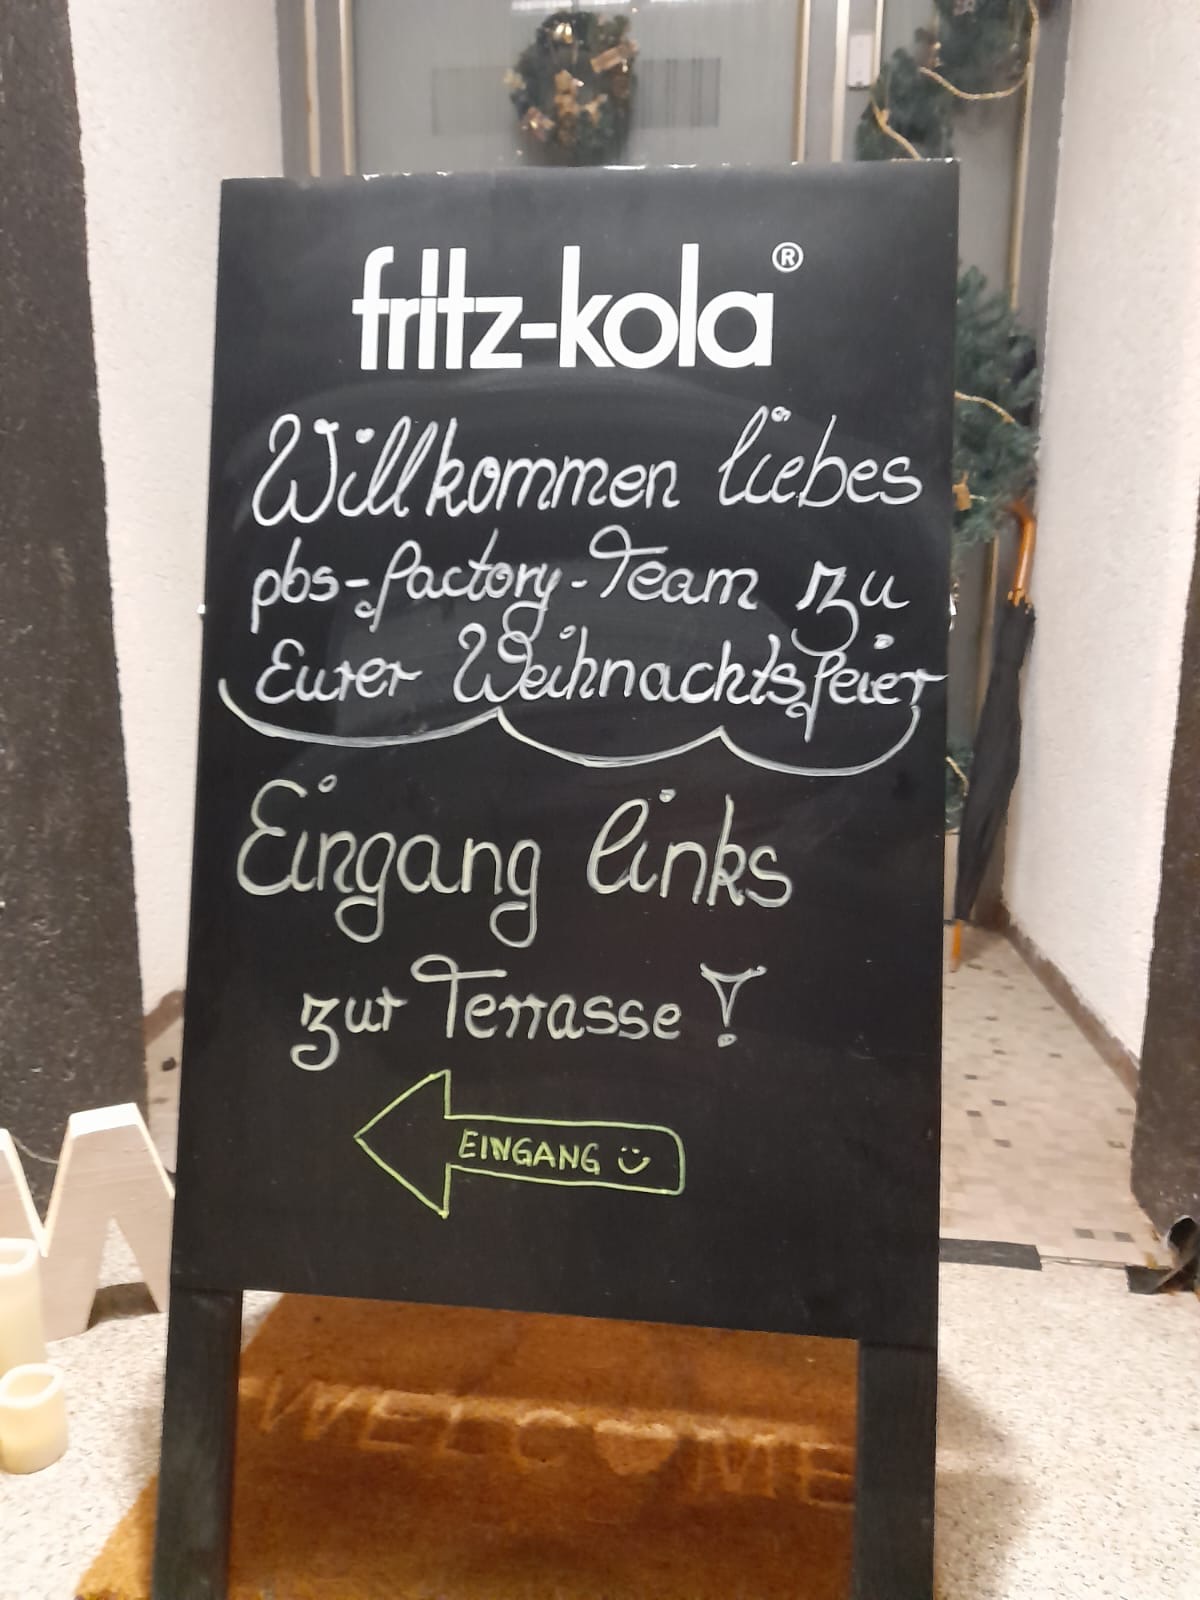 fritz-kola®
Willkommen liebes
pbs-factory-Team zu
Eurer Weihnachtsfeier
Eingang links
zur Terrasse!
EINGANG
WELCOME
W